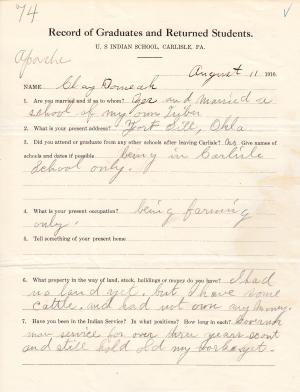 74
Record of Graduates and Returned Students.
U. S INDIAN SCHOOL, CARLISLE, PA.
Apache
August 11 1910.
NAME Clay Domeah
1. Are you married and if so to whom? Yes and married a
school of my own Triber
2. What is your present address? Fort Sill, Okla
3. Did you attend or graduate from any other schools after leaving Carlisle? Give names of
schools and dates if possible being in Carlisle
School only.
4. What is your present occupation? being farming
only.
5. Tell something of your present home
6. What property in the way of land, stock, buildings or money do you have? I had
no land yet, but, I have some
Cattle. and had not own any money.
7. Have you been in the Indian Service? In what positions? How long in each?
man service for over three years scout
and still hold old my